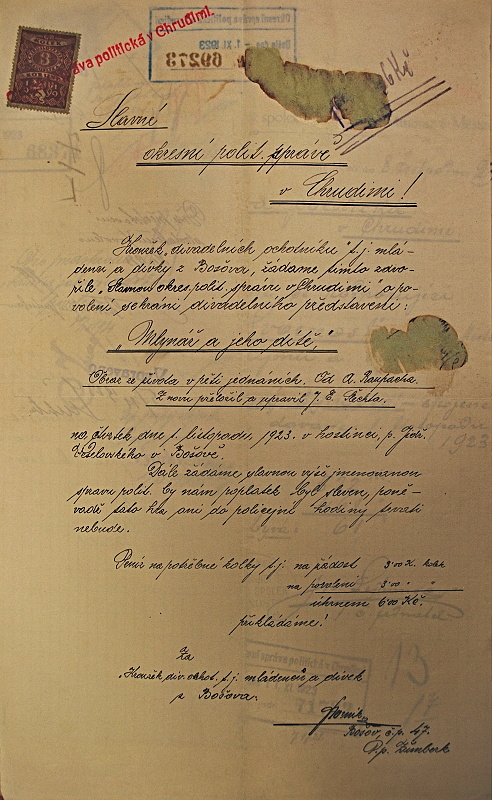 práva politická v Chrudimi.
KOLEK
3
Okresní správa politická
Došlo dne – 1. XI. 1923
69273
6 Kč
Slavné
okresní polit. správě
v Chrudimi!
Kroužek „divadelních ochotníků“ t. j. mlá-
denci a dívky z Bošova, žádáme tímto zdvo-
řile „Slavnou okres. polit. správu v Chrudimi“ o po-
volení sehrání divadelního představení:
„Mlynář a jeho dítě,“
Obraz ze života v pěti jednáních. Od A. Raupacha.
Znovu přeložil a upravil J. E. Šlechta.
na čtvrtek dne 1. listopadu 1923. v hostinci, p. Jos.
v Bošově.
Dále žádáme slavnou výše jmenovanou
správu polit. by nám poplatek byl sleven, poně-
vadž tato hra ani do policejní hodiny trvati
nebude.
Peníz na potřebné kolky t. j. na žádost 3·00 K. kolek
na povolení 3·00 " "
úhrnem 6·00 Kč.
přikládáme!
Za
„Kroužek div. ochot. t. j. mládenců a dívek
z Bošova.
Bošov, č.p. 47.
P.p. Žumberk
13